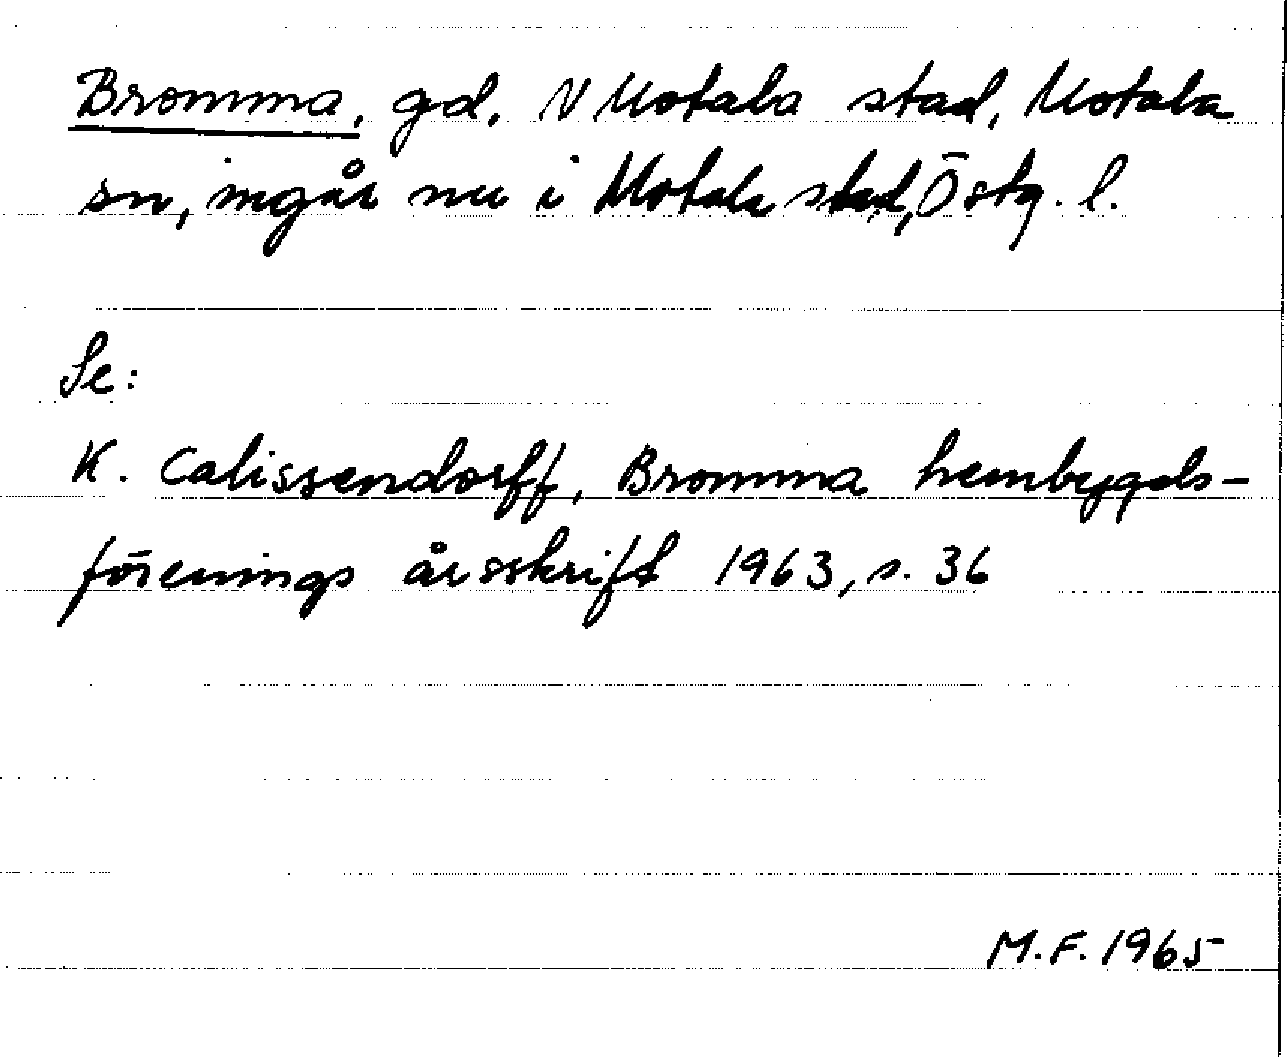 Bromma, gd. N Motala stad, Motala
sn, ingår nu i Motala stad, Östg. l.
Se:
K. Calissendorff, Bromma hembygds-
förenings årsskrift 1963, s. 36
M.F. 1965